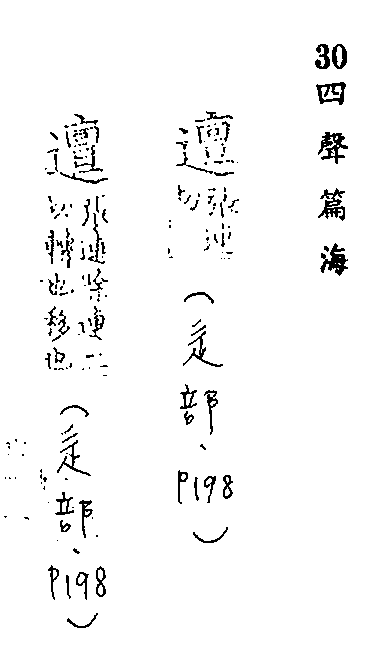 30四聲篇海
邅
張連
切
(辵部、P198)
邅
張連除連二
切轉也移也
(辵部、P198)